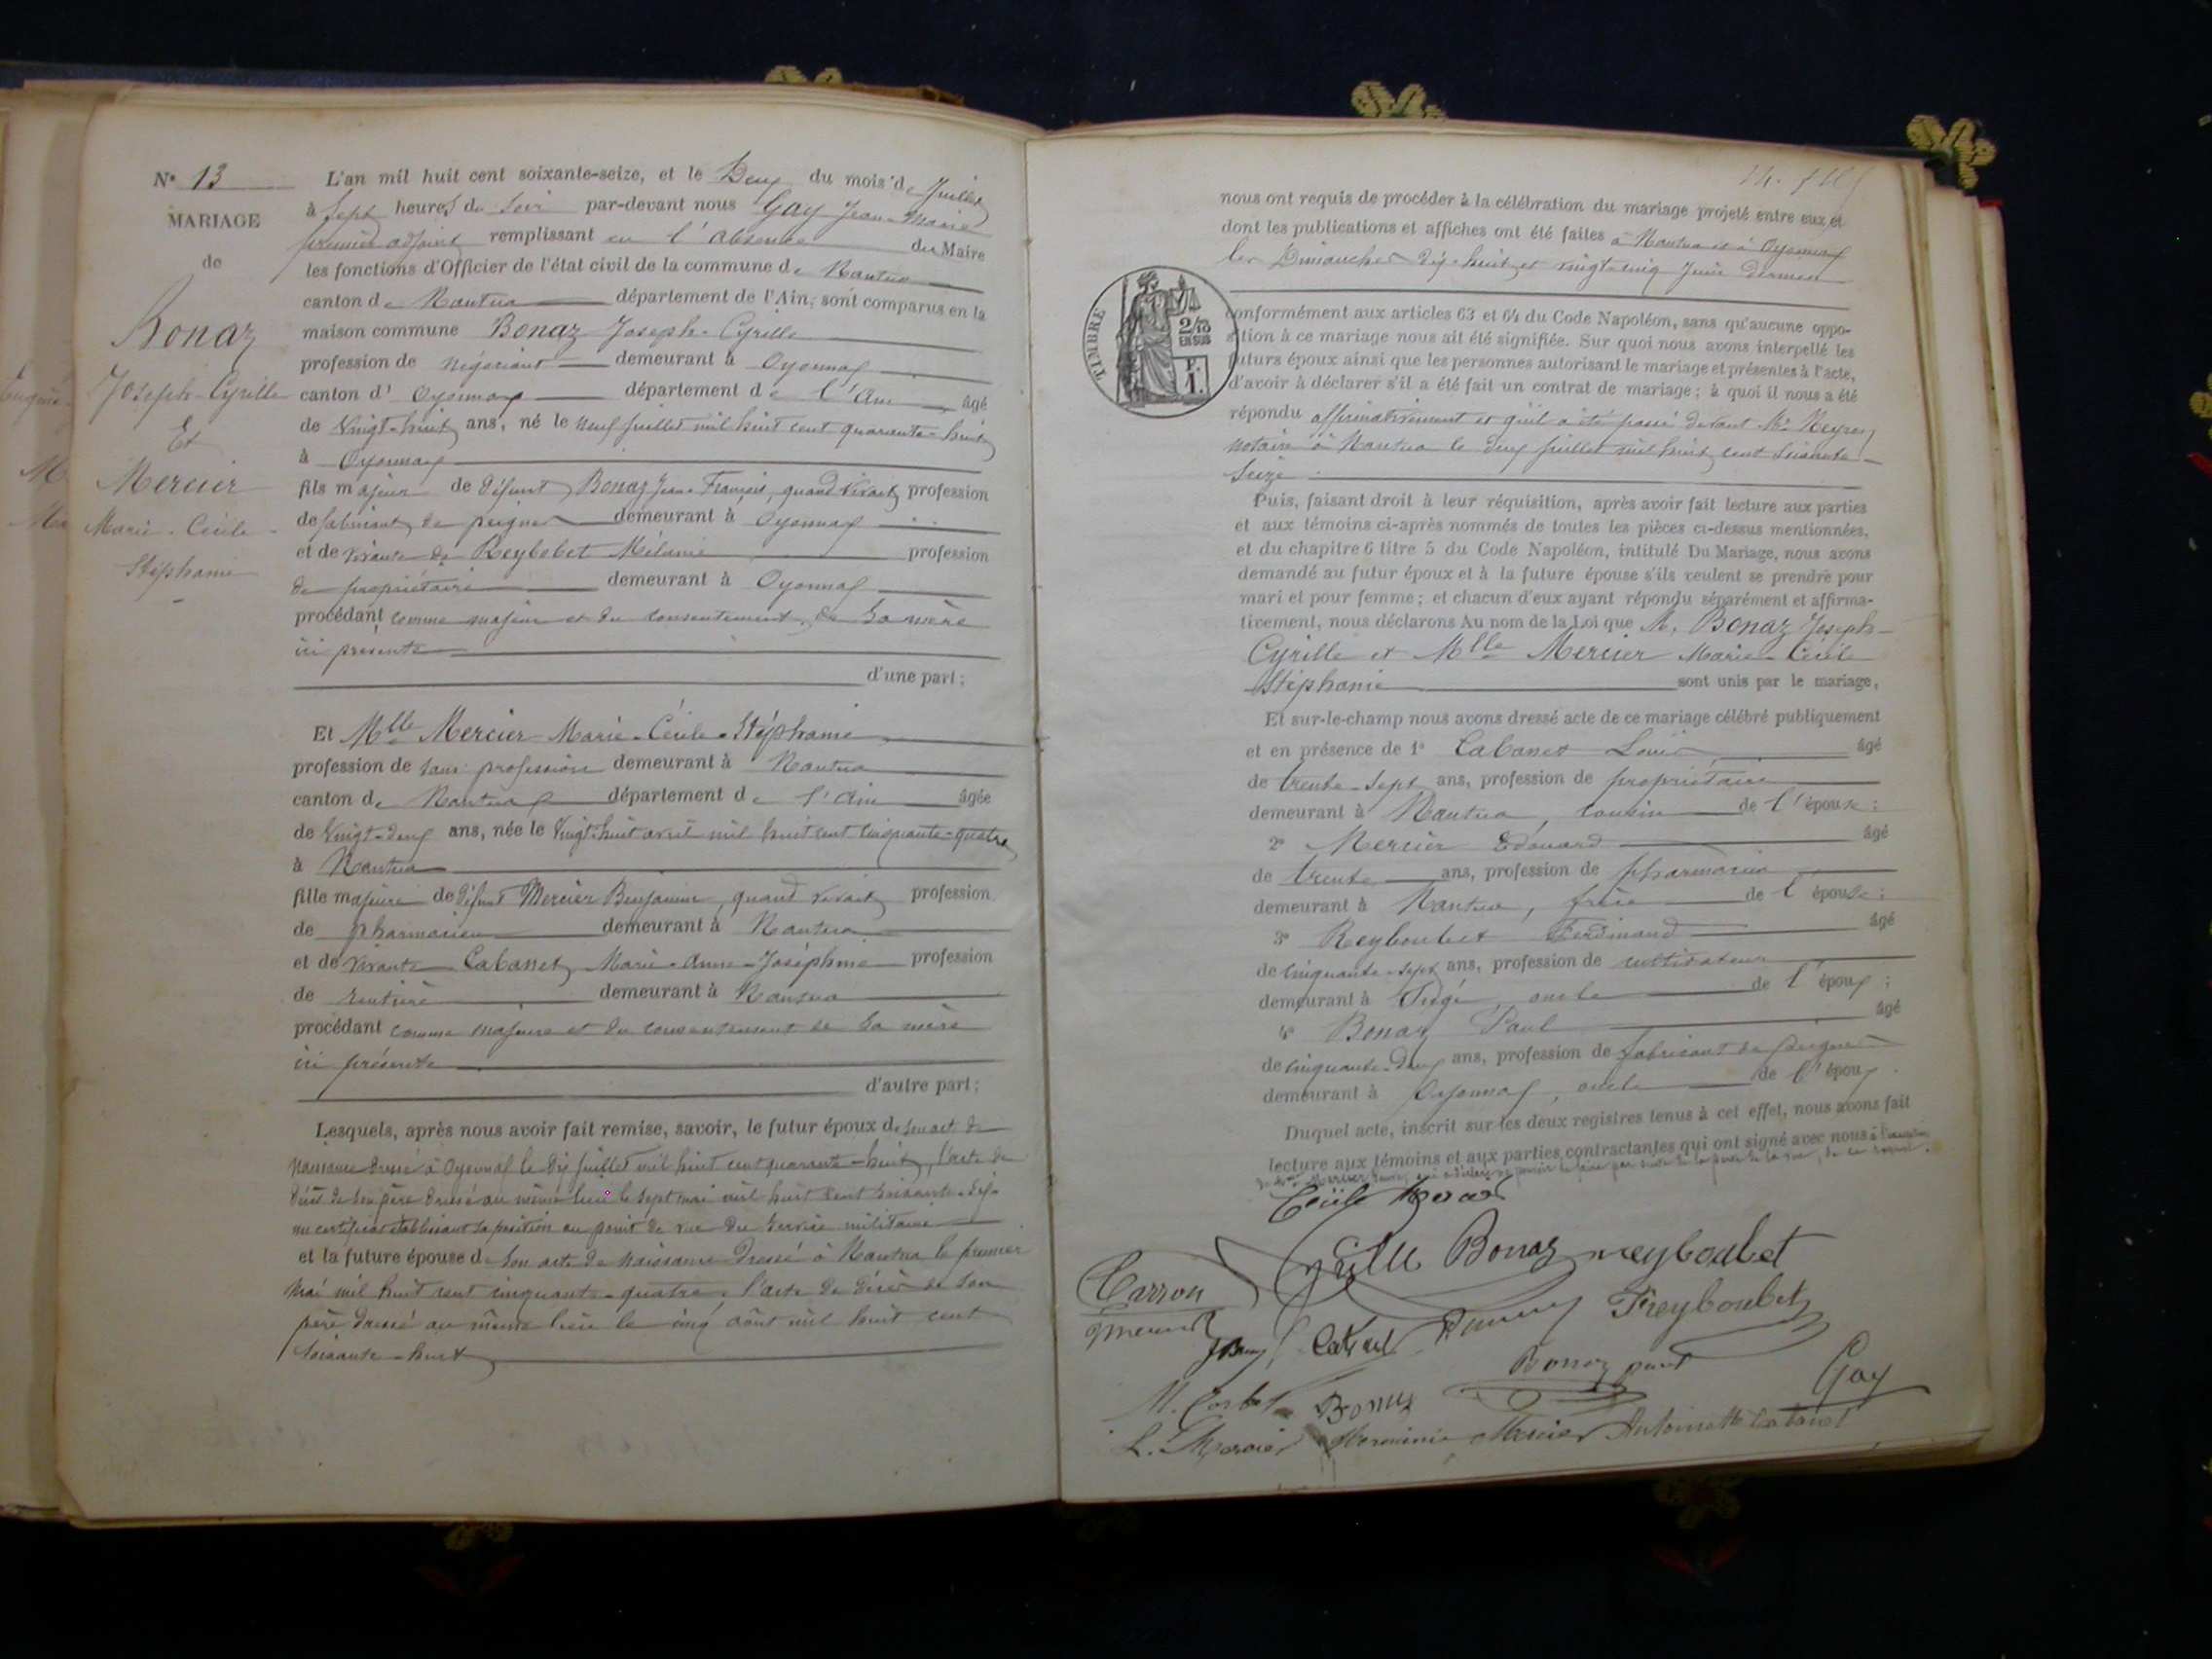 N° 13
MARIAGE
de
Bonaz
Joseph-Cyrille
Et
Mercier
Marie-Cécile-
Stéphanie
L'an mil huit cent soixante-seize, et le Deux du mois de Juillet
à Sept heures du Soir par-devant nous Gay Jean-Marie
premier adjoint remplissant en l'absence du Maire
les fonctions d'Officier de l'état civil de la commune de Nantua
canton de Nantua département de l'Ain, sont comparus en la
maison commune Bonaz Joseph-Cyrille
profession de négociant demeurant à Oyonnax
canton d' Oyonnax département de l'Ain âgé
de Vingt-huit ans, né le neuf juillet mil huit cent quarante-huit
à Oyonnax
fils majeur de défunt Bonaz Jean-François, quand vivait profession
de fabricant de peignes demeurant à Oyonnax
et de vivante de Reybobet Mélanie profession
de propriétaire demeurant à Oyonnax
procédant comme majeur et du consentement de sa mère
ici présente
d'une part;
Et Mlle Mercier Marie-Cécile-Stéphanie
profession de sans profession demeurant à Nantua
canton de Nantua département de l'Ain âgée
de Vingt-deux ans, née le Vingt-huit avril mil huit cent cinquante-quatre
à Nantua
fille majeure de défunt Mercier Benjamin, quand vivait profession
de pharmacien demeurant à Nantua
et de vivante Cabanet Marie-Anne-Joséphine profession
de rentière demeurant à Nantua
procédant comme majeure et du consentement de sa mère
ici présente
d'autre part;
Lesquels, après nous avoir fait remise, savoir, le futur époux de son act. de
naissance dressé à Oyonnax le dix juillet mil huit cent quarante-huit, l'acte de
décès de son père dressé au même lieu le sept mai mil huit cent soixante-dix-
un certificat établissant sa position au point de vue du service militaire
et la future épouse de son acte de naissance dressé à Nantua le premier
mai mil huit cent cinquante-quatre, l'acte de décès de son
père dressé au même lieu le cinq août mil huit cent
soixante-huit
nous ont requis de procéder à la célébration du mariage projeté entre eux et
dont les publications et affiches ont été faites à Nantua et à Oyonnax
les Dimanches dix-huit et vingt-cinq Juin dernier
TIMBRE
2/10
EN SUS
F.
1.
conformément aux articles 63 et 64 du Code Napoléon, sans qu'aucune oppo-
sition à ce mariage nous ait été signifiée. Sur quoi nous avons interpellé les
futurs époux ainsi que les personnes autorisant le mariage et présentes à l'acte,
d'avoir à déclarer s'il a été fait un contrat de mariage; à quoi il nous a été
répondu affirmativement et qu'il a été passé devant Me Neyret
notaire à Nantua le deux juillet mil huit cent soixante-
seize
Puis, faisant droit à leur réquisition, après avoir fait lecture aux parties
et aux témoins ci-après nommés de toutes les pièces ci-dessus mentionnées,
et du chapitre 6 titre 5 du Code Napoléon, intitulé Du Mariage, nous avons
demandé au futur époux et à la future épouse s'ils veulent se prendre pour
mari et pour femme; et chacun d'eux ayant répondu séparément et affirma-
tivement, nous déclarons Au nom de la Loi que M. Bonaz Joseph-
Cyrille et Mlle Mercier Marie-Cécile
Stéphanie sont unis par le mariage,
Et sur-le-champ nous avons dressé acte de ce mariage célébré publiquement
et en présence de 1° Cabanet Louis âgé
de trente-sept ans, profession de propriétaire
demeurant à Nantua, cousin de l'épouse;
2° Mercier Edouard âgé
de trente ans, profession de pharmacien
demeurant à Nantua, frère de l'épouse;
3° Reyboubet Ferdinand âgé
de cinquante-sept ans, profession de cultivateur
demeurant à oncle de l'époux;
4° Bonaz Paul âgé
de cinquante-deux ans, profession de fabricant de peignes
demeurant à Oyonnax, oncle de l'époux.
Duquel acte, inscrit sur les deux registres tenus à cet effet, nous avons fait
lecture aux témoins et aux parties contractantes qui ont signé avec nous à l'exception
de Mme Mercier
Cécile
Cyrille Bonaz Reyboubet
Carron
Freyboubet
Bonaz paul
Gay
M. Corbet Bonaz
L. Mercier Herminie Mercier Antoinette Cabanet